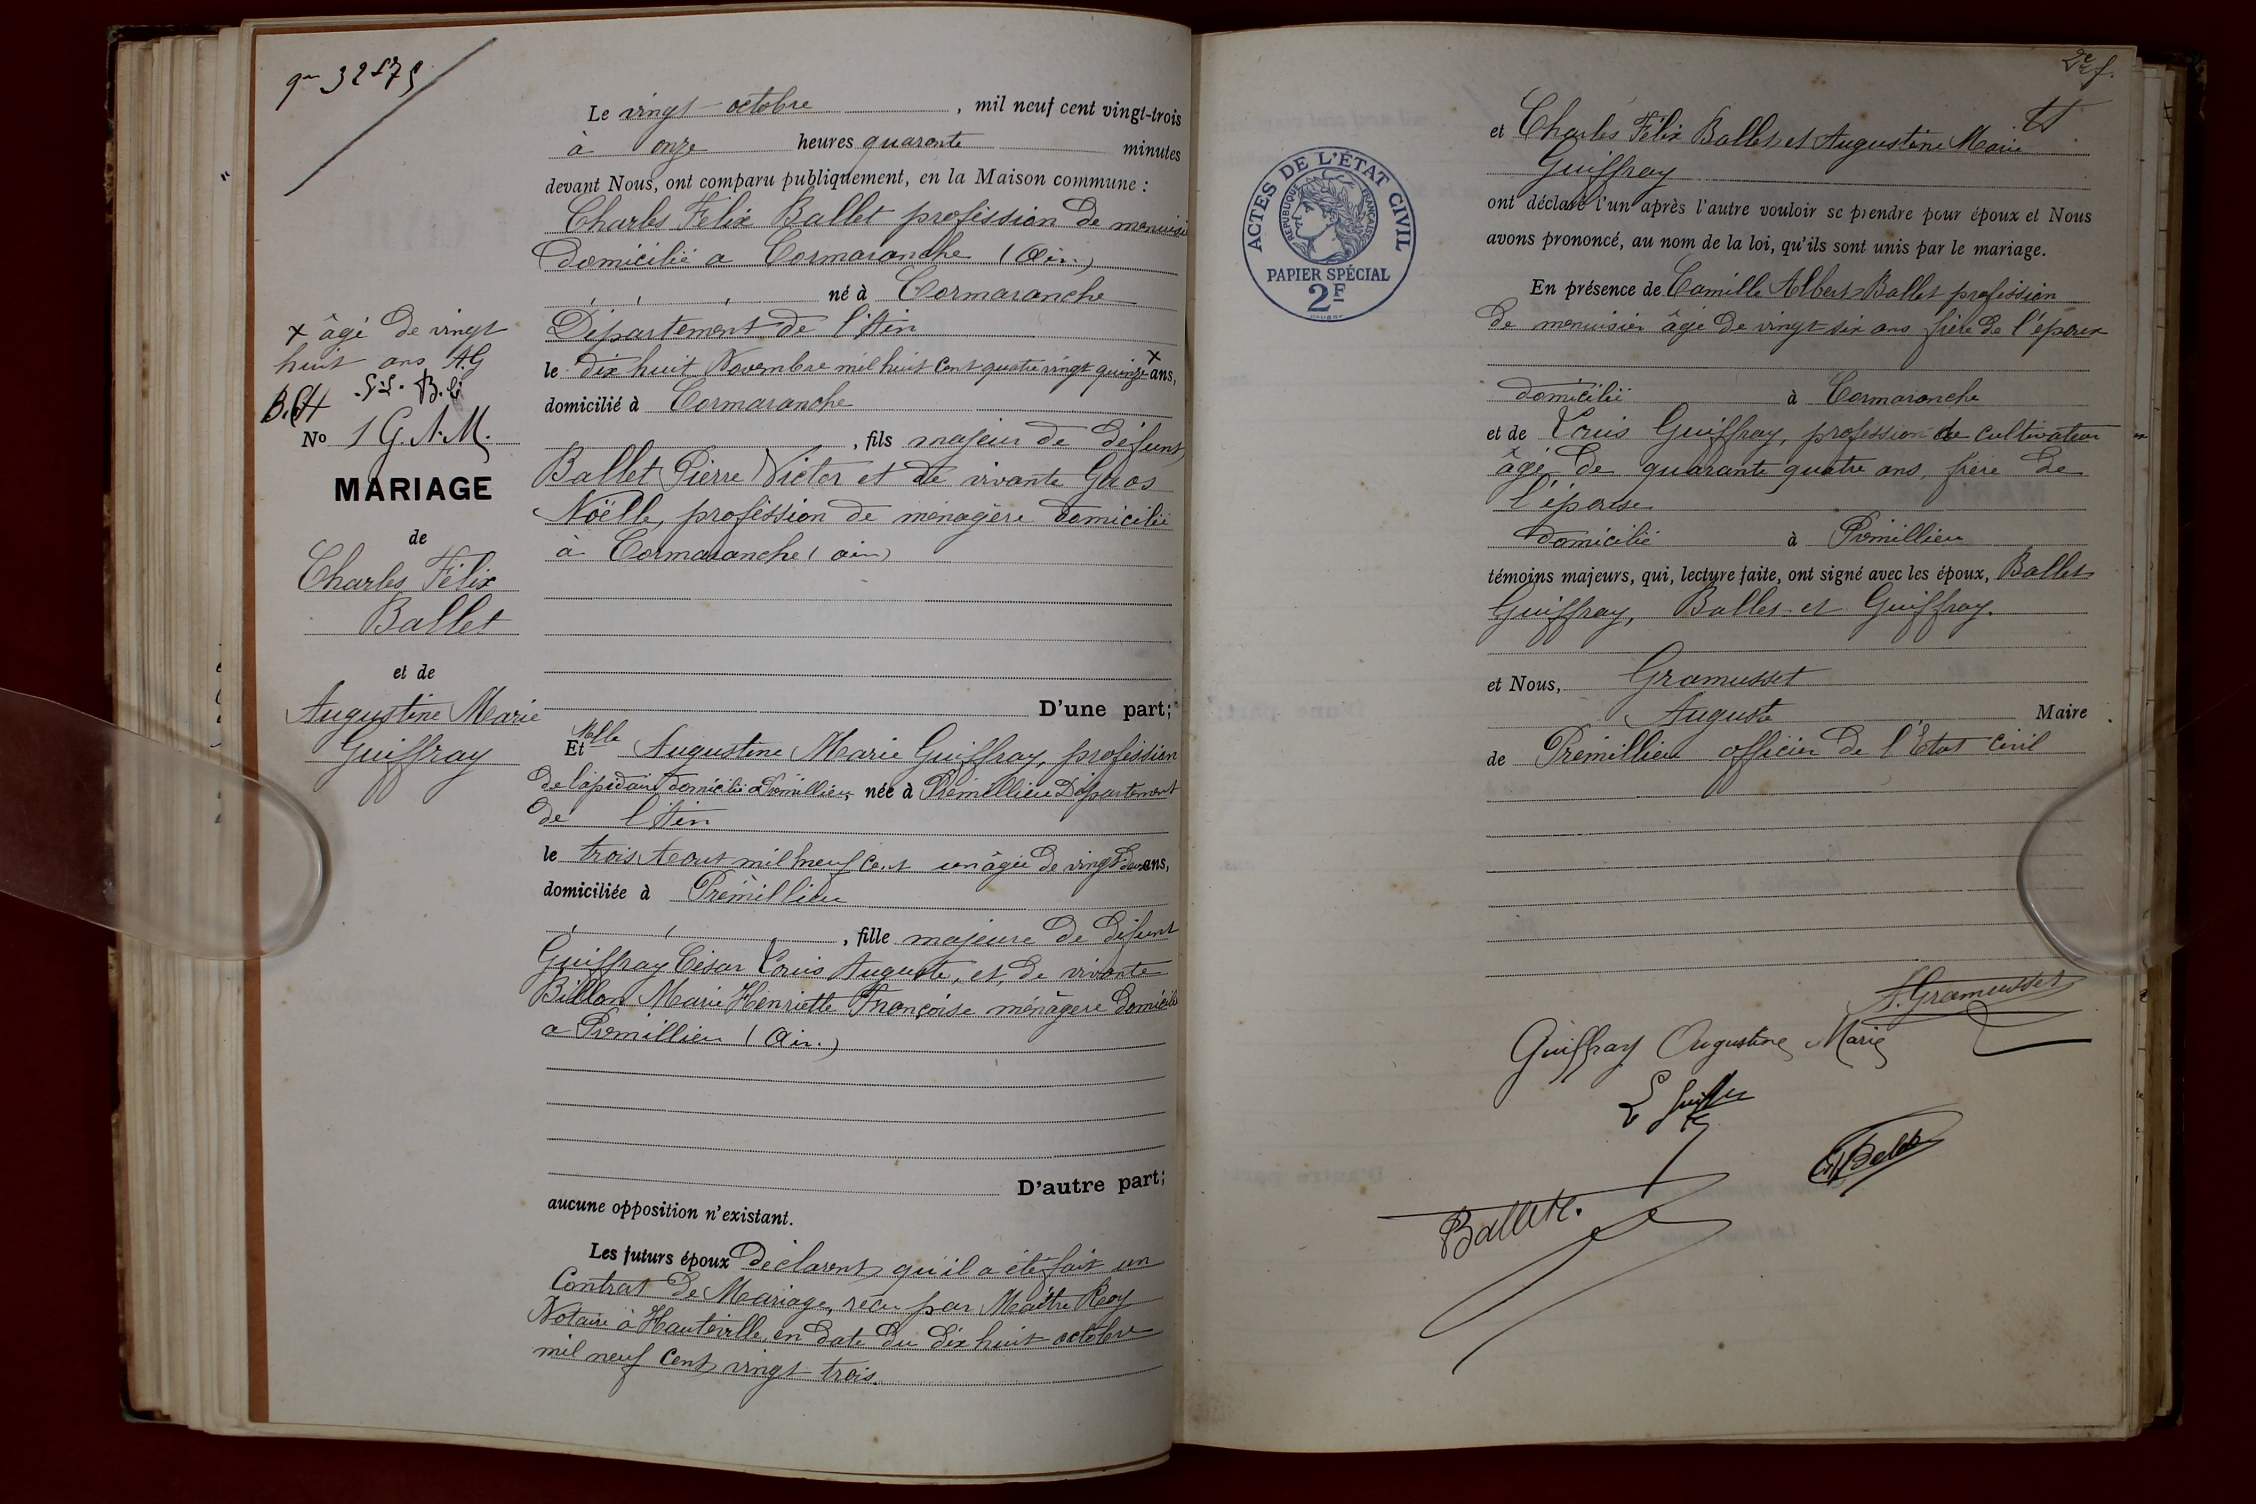 Le vingt octobre , mil neuf cent vingt-trois
à onze heures quarante minutes
devant Nous, ont comparu publiquement, en la Maison commune :
Charles Félix Ballet profession de menuisier
domicilié a Cormaranche (Ain)
né à Cormaranche
Département de l'Ain
le dix huit Novembre mil huit cent quatre vingt quinze x ans,
domicilié à Cormaranche
, fils majeur de défunt
Ballet Pierre Victor et de vivante Gros
Noëlle, profession de ménagère domicilié
à Cormaranche (ain)
D'une part;
x âgé de vingt
huit ans A.G
No 1 G.A.M.
MARIAGE
de
Charles Félix
Ballet
et de
Augustine Marie
Guiffray
Et Mlle Augustine Marie Guiffray, profession
de lapidaire domicilié à Prémillieu, née à Prémillieu Département
de l'Ain
le trois Aout mil neuf cent un âgée de vingt deux ans,
domiciliée à Prémillieu
, fille majeure de défunt
Guiffray César Louis Auguste, et de vivante
Billon Marie Henriette Françoise ménagère domicilié
a Prémillieu (Ain.)
D'autre part;
aucune opposition n'existant.
Les futurs époux déclarent qu'il a été fait un
Contrat de Mariage, recu par Maître Roy
Notaire à Hauteville, en date du dix huit octobre
mil neuf cent vingt trois.
2e f.
ACTES DE L'ÉTAT CIVIL
RÉPUBLIQUE FRANÇAISE
PAPIER SPÉCIAL
2F
et Charles Félix Ballet et Augustine Marie
Guiffray
ont déclaré l'un après l'autre vouloir se prendre pour époux et Nous
avons prononcé, au nom de la loi, qu'ils sont unis par le mariage.
En présence de Camille Albert Ballet profession
de menuisier âgé de vingt six ans frère de l'époux
domicilié à Cormaranche
et de Louis Guiffray, profession de cultivateur
âgé de quarante quatre ans, frère de
l'épouse
domicilié à Prémillieu
témoins majeurs, qui, lecture faite, ont signé avec les époux, Ballet
Guiffray, Ballet et Guiffray.
et Nous, Gramusset
Auguste Maire
de Prémillieu officier de l'Etat civil
A. Gramusset
Guiffray Augustine Marie